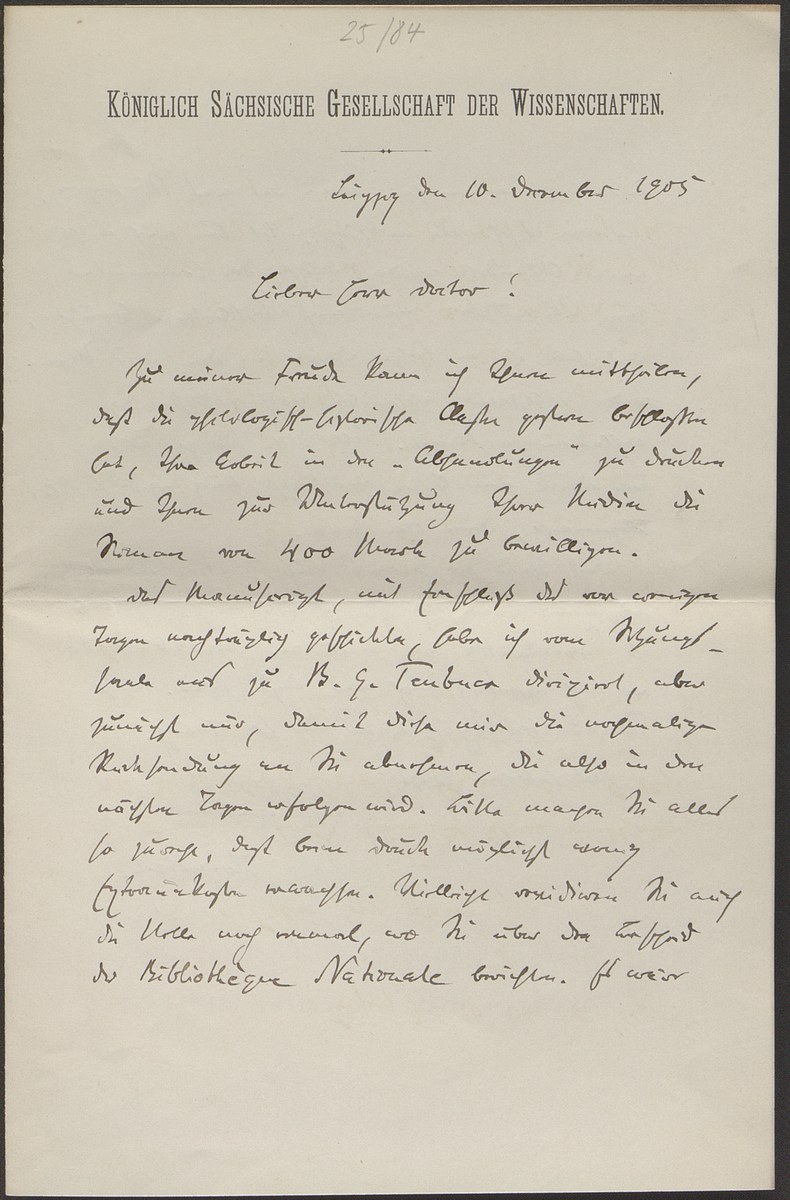 25/84
KÖNIGLICH SÄCHSISCHE GESELLSCHAFT DER WISSENSCHAFTEN.
Leipzig den 10. December 1905
Lieber Herr Doctor!
Zu meiner Freude kann ich Ihnen mittheilen,
daß die philologisch-historische Classe gestern beschlossen
hat, Ihre Arbeit in den „Abhandlungen" zu drucken
und Ihnen zur Unterstützung Ihrer Studien die
Summe von 400 Mark zu bewilligen.
Das Manuscript, mit Einschluß des vor wenigen
Tagen nachträglich geschickten, habe ich vom Sitzungs-
saale aus zu B. G. Teubner dirigirt, aber
zunächst nur, damit diese mir die nochmalige
Rücksendung an Sie abnehmen, die also in den
nächsten Tagen erfolgen wird. Bitte machen Sie alles
so zurecht, daß beim Druck möglichst wenig
Extraunkosten erwachsen. Vielleicht revidiren Sie auch
die Stelle noch einmal, wo Sie über den Bescheid
der Bibliothèque Nationale berichten. Es wäre